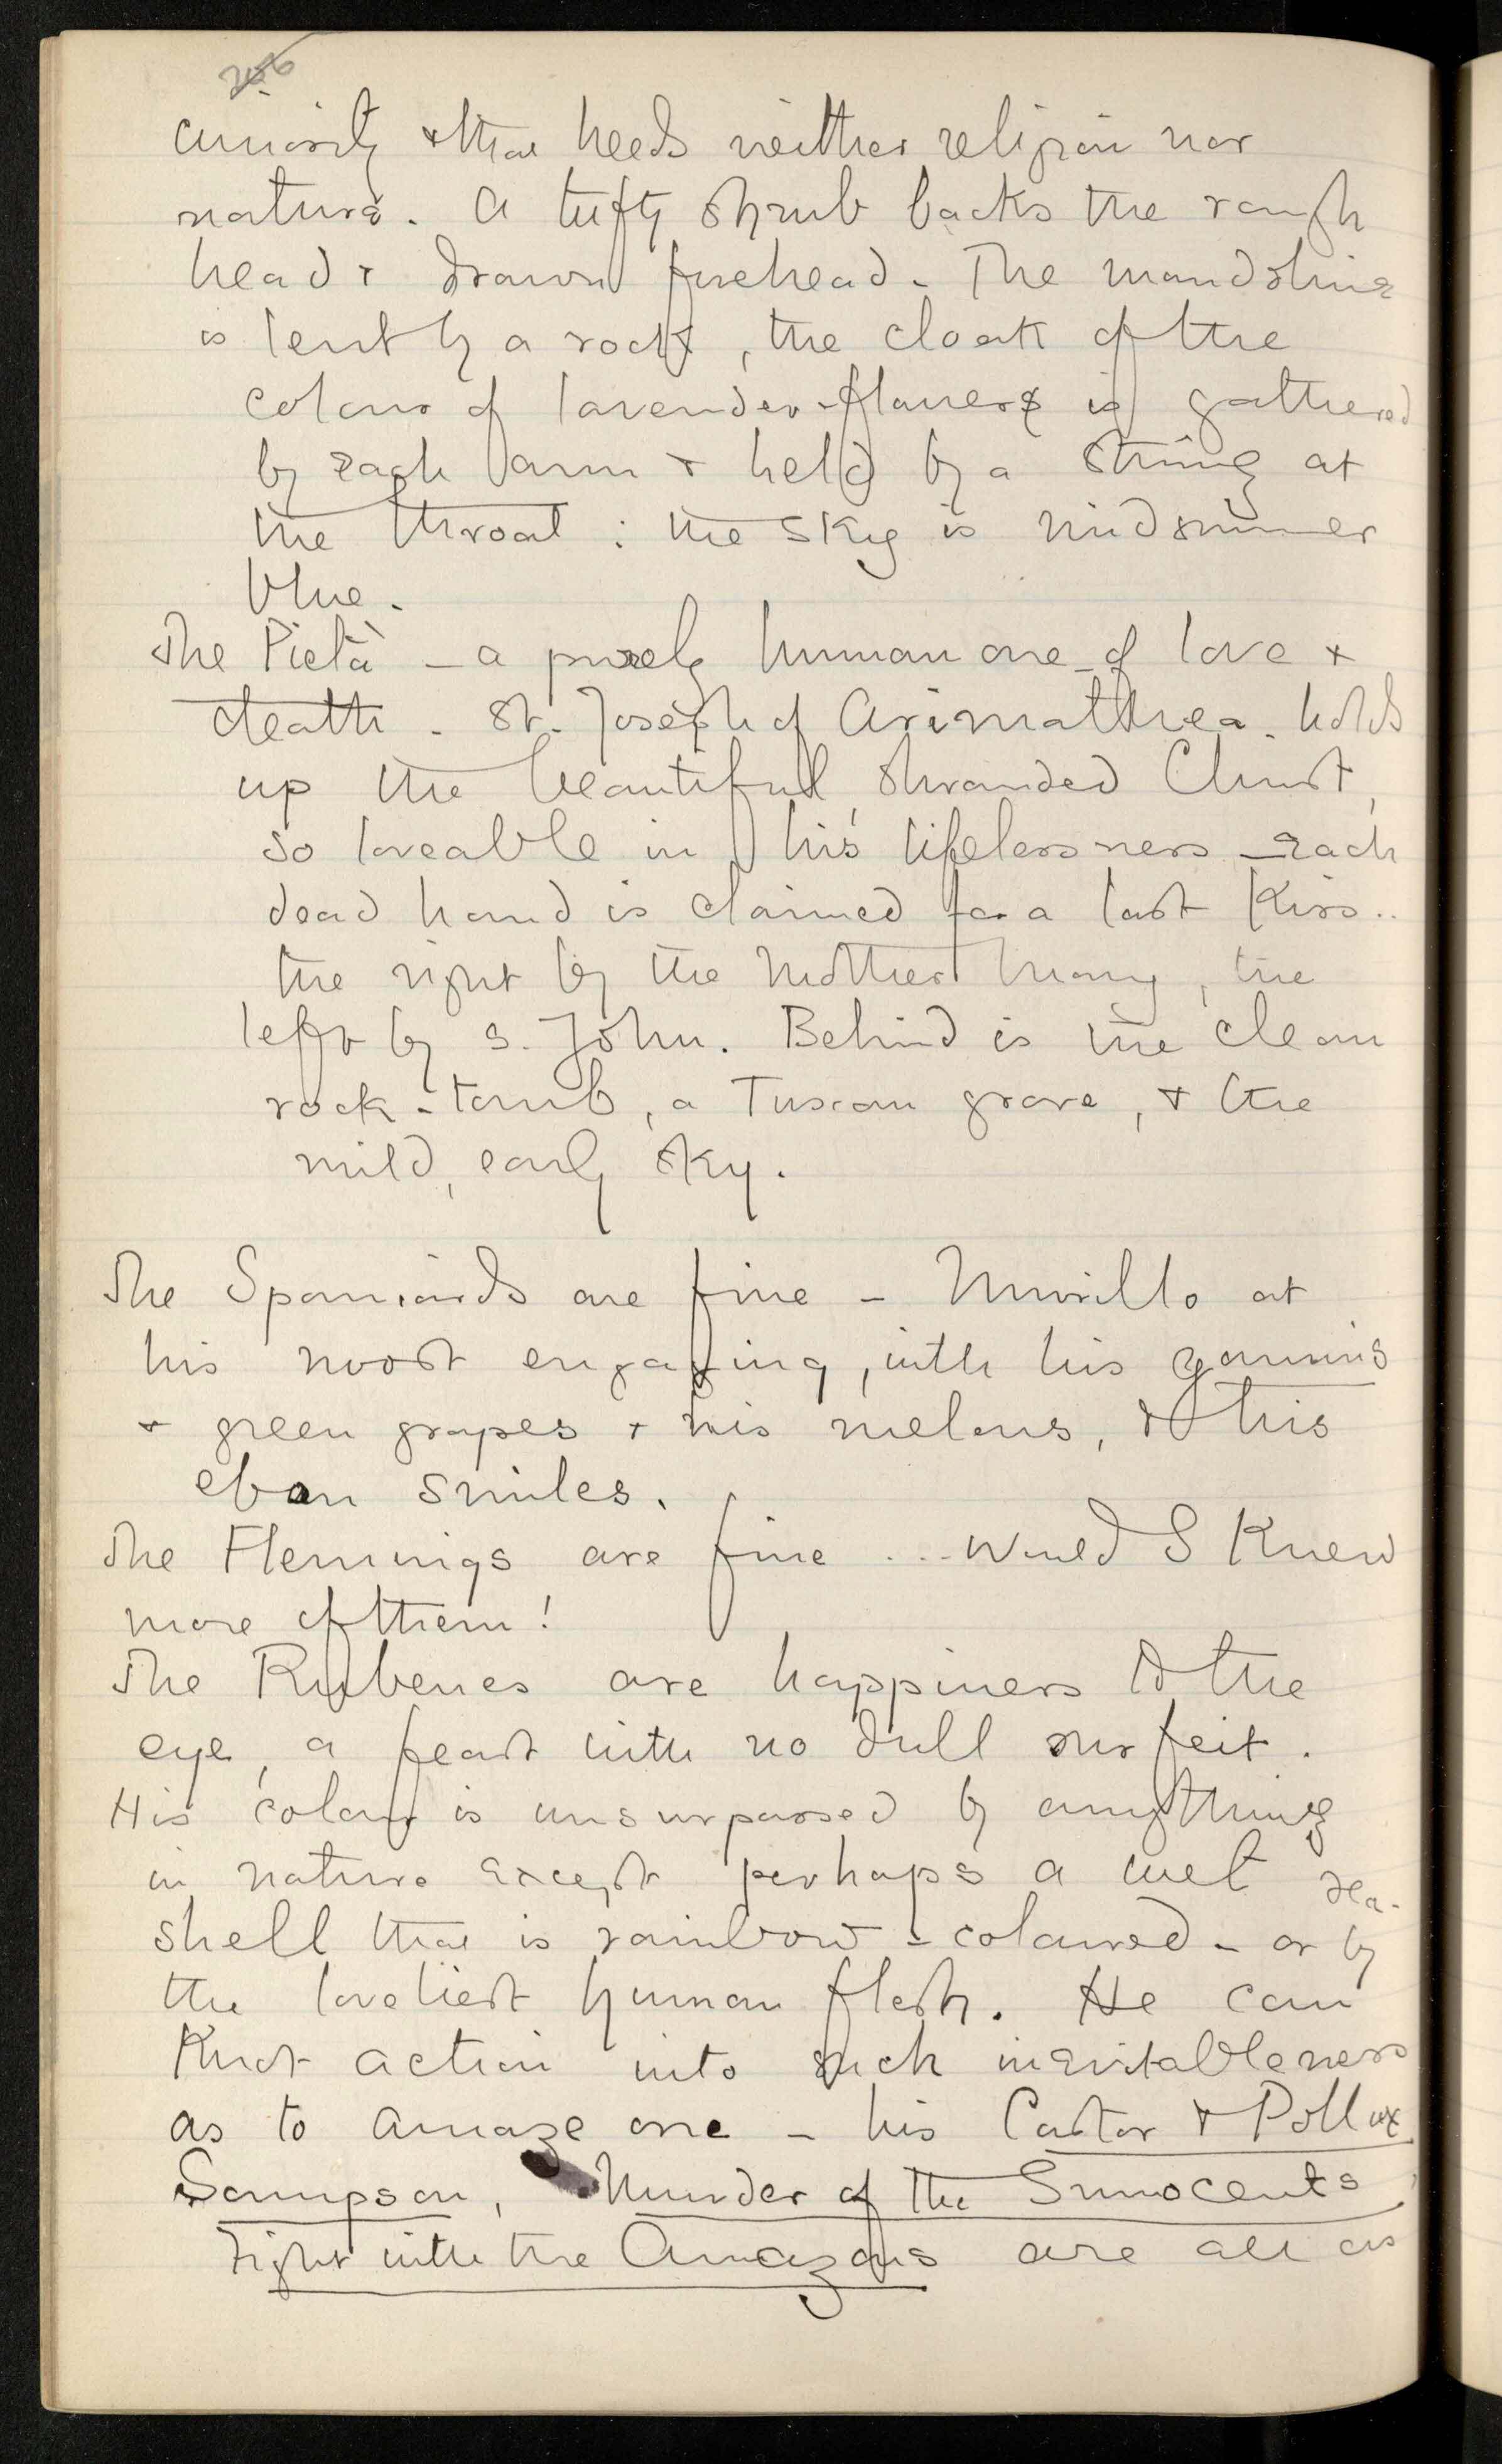 curiosity & that heeds neither religion nor
nature. A tufty shrub backs the rough
head & drawn forehead. The
is lent by a rock, the cloak of the
colour of lavender-flowers is gathered
by each arm & held by a string at
the throat : the sky is midsummer
blue.
The Pietà – a purely human one – of love &
death. St. Joseph of Arimathea. holds
up the beautiful, shrouded Christ,
so loveable in his lifelessness – each
dead hand is claimed for a last kiss..
the right by the Mother Mary, the
left by S. John. Behind is the clean
rock-tomb, a Tuscan grove, & the
mild, early sky.
The Spaniards are fine – Murillo at
his most engaging, with his gamins
& green grapes & his melons, & his
ebon smiles.
The Flemings are fine ... Would I knew
more of them!
The Rubenes are happiness to the
eye, a feast with no dull surfeit.
His colour is unsurpassed by anything
in nature except perhaps a wet sea-
shell that is rainbow-coloured – or by
the loveliest human flesh. He can
knot action into such inevitableness
as to amaze one – his Castor & Pollux
Sampson, Murder of the Innocents,
Fight with the Amazons are all as